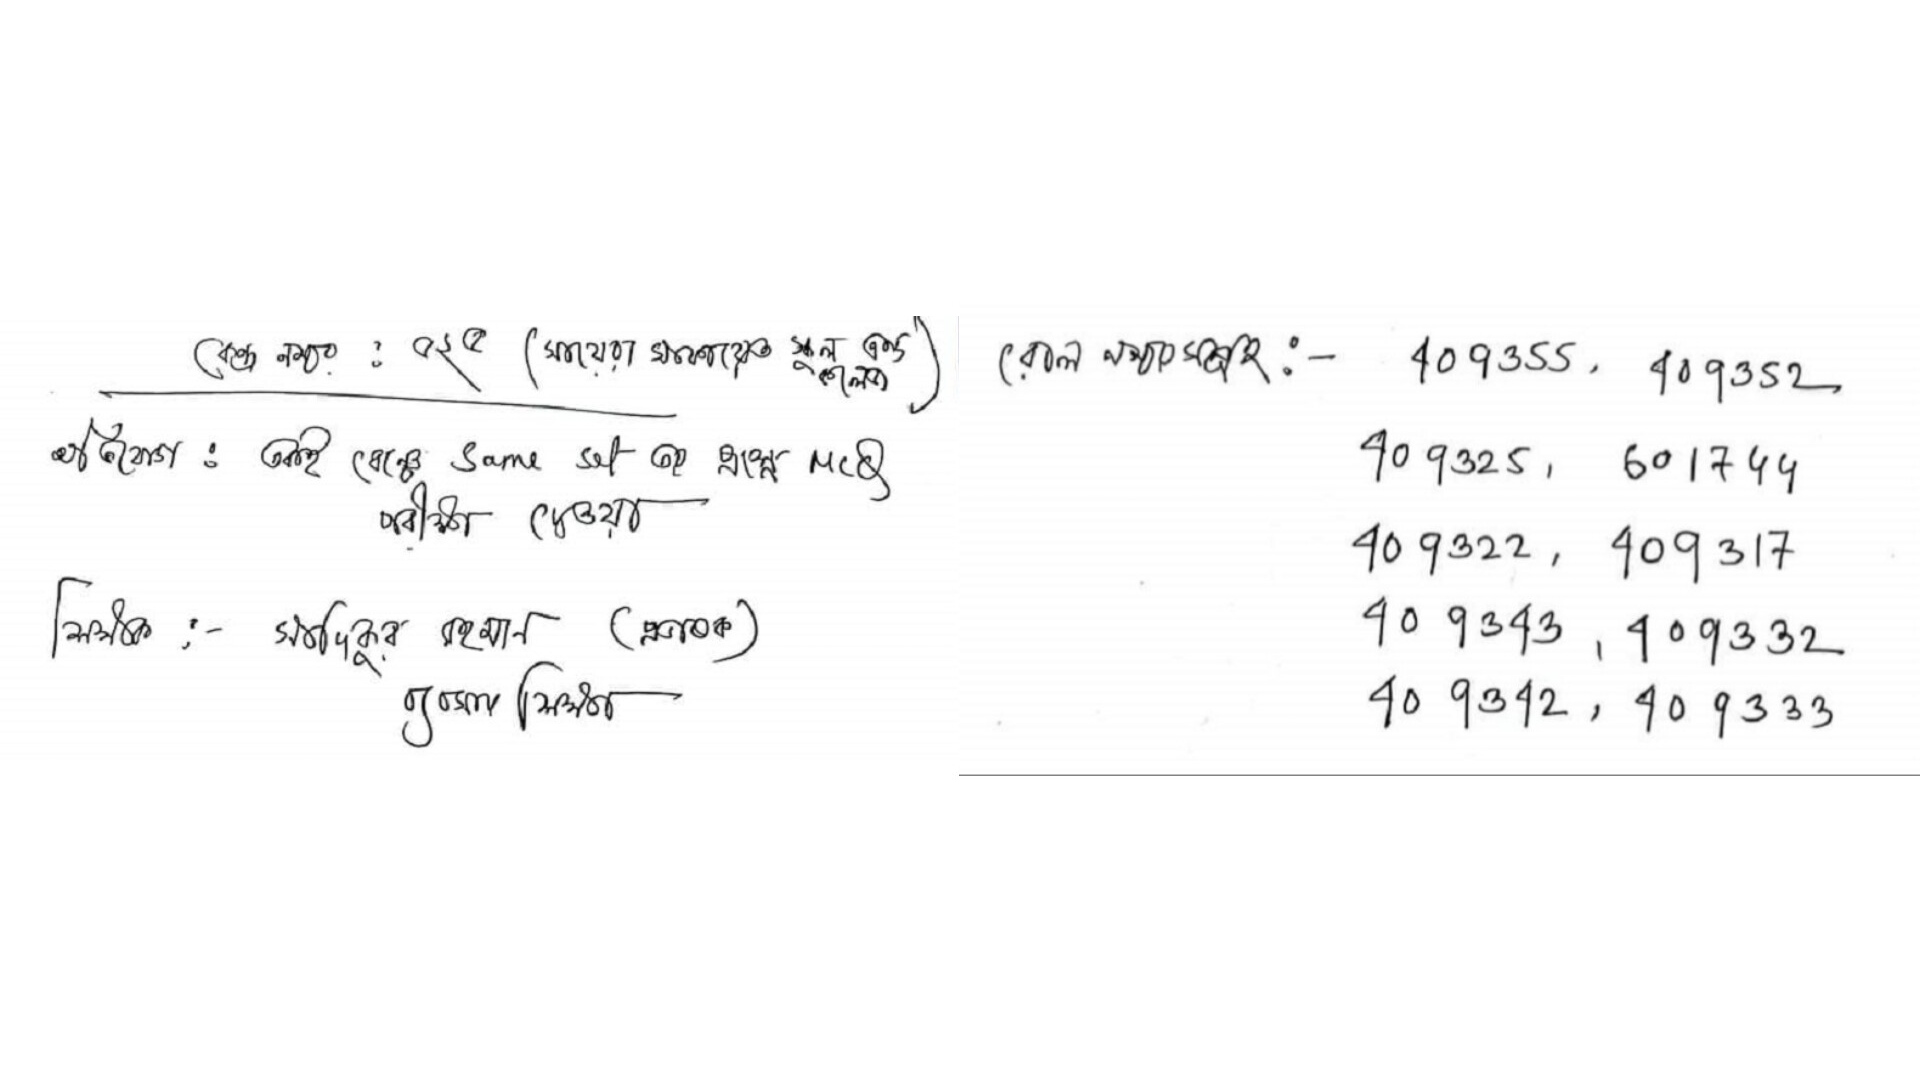 কেন্দ্র নম্বর : ৭২৫ (সায়েরা সাফায়েত স্কুল এন্ড
কলেজ)
অভিযোগ : একই বেঞ্চে Same set এর প্রশ্নে MCQ
পরীক্ষা দেওয়া
শিক্ষক :- রহমান (প্রভাষক)
শিক্ষা
রোল নম্বরসমূহ :- 409355, 409352,
409325, 601744
409322, 409317
409343, 409332
409342, 409333